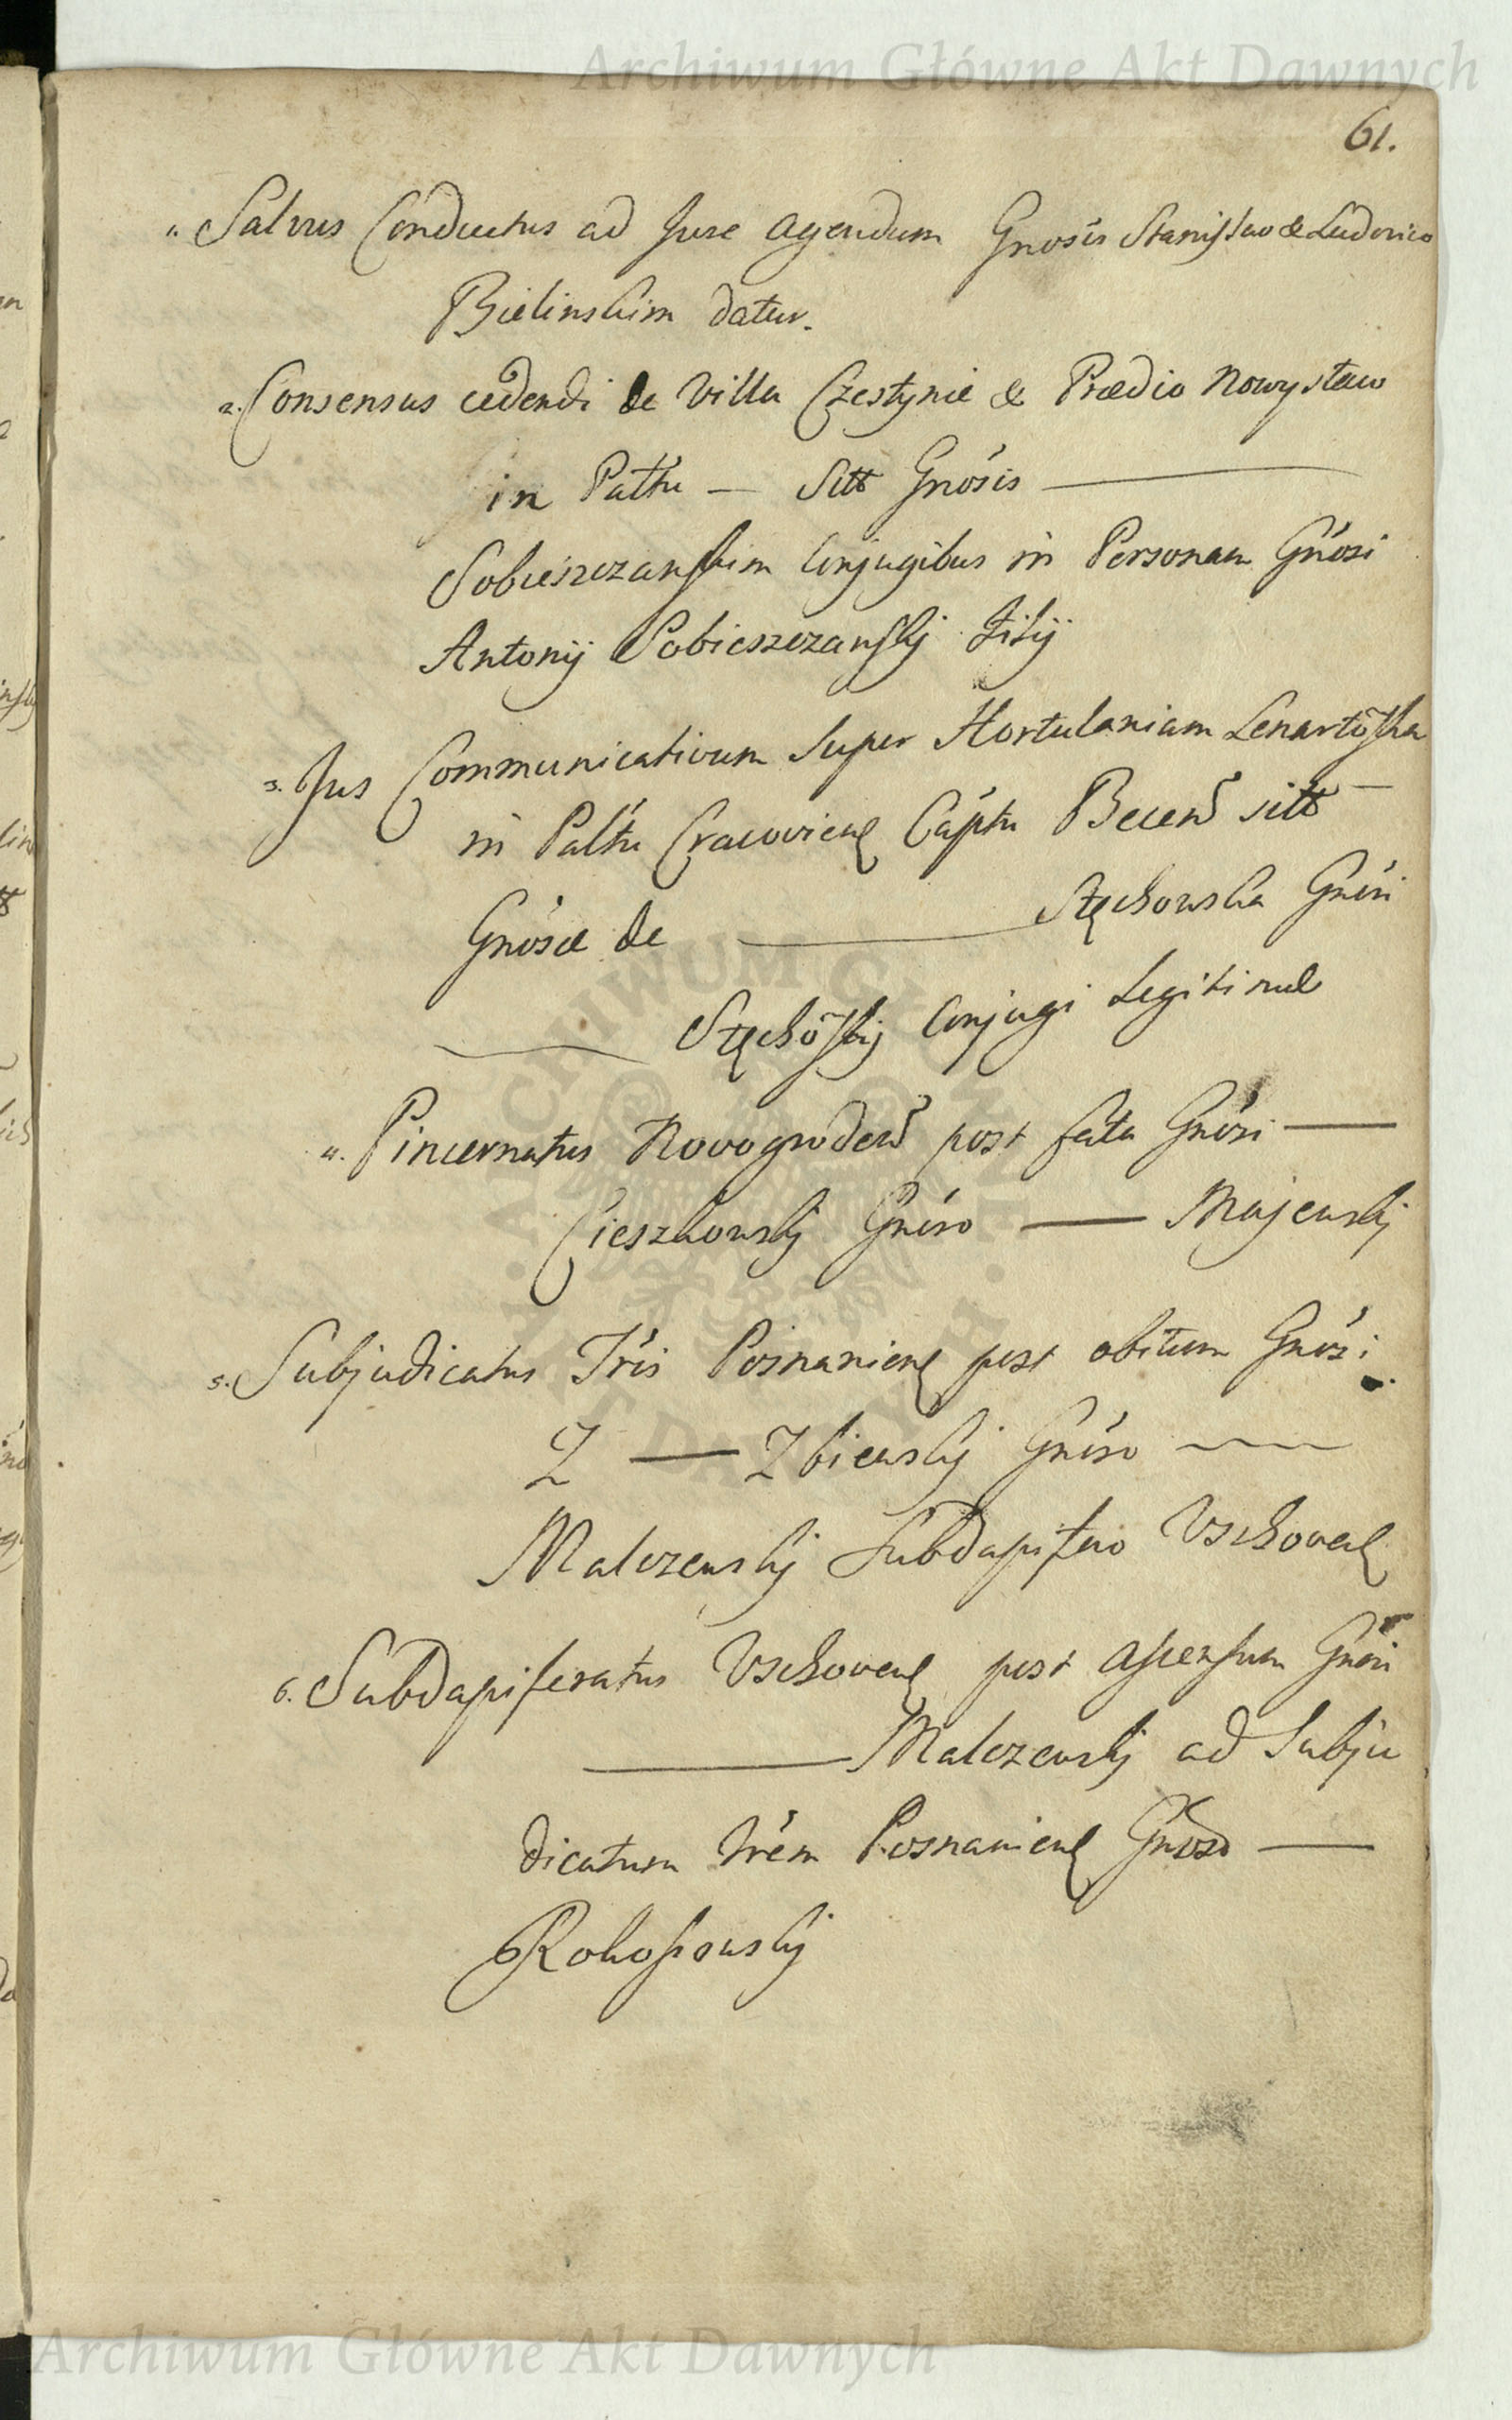 Archiwum Główne Akt Dawnych
61.
1. Salvus Conductus ad Jure agendum Gnosis Stanislao & Ludovico
Bielinskim datur.
2. Consensus cedendi de Villa Czestynie & Prædio Nowystaw
in Palttu — Sitt Gnosis —
Sobieszczanskim Conjugibus in Personam Gnosi
Antonij Sobieszczanskj Filij
3. Jus Communicativum super Hortulaniam Lenartoska
in Palttu Cracovien Captu Becen sitt —
Gnosæ de — Stęchowska Gnosi
— Stęchoskij Conjugi Legitimæ
4. Pincernatus Novogroden post fata Gnosi —
Cieszkowskj Gnoso — Majewskj
5. Subjudicatus Tris Posnanien post obitum Gnosi
Z — Zbiewskj Gnoso —
Malczewskj Subdapifero Vschoven
6. Subdapiferatus Vschoven post ascensum Gnosi
— Malczewskj ad Subju
dicatum Trem Posnanien Gnoso —
Rokossowskj
ARCHIWUM GŁÓWNE AKT DAWNYCH
Archiwum Główne Akt Dawnych